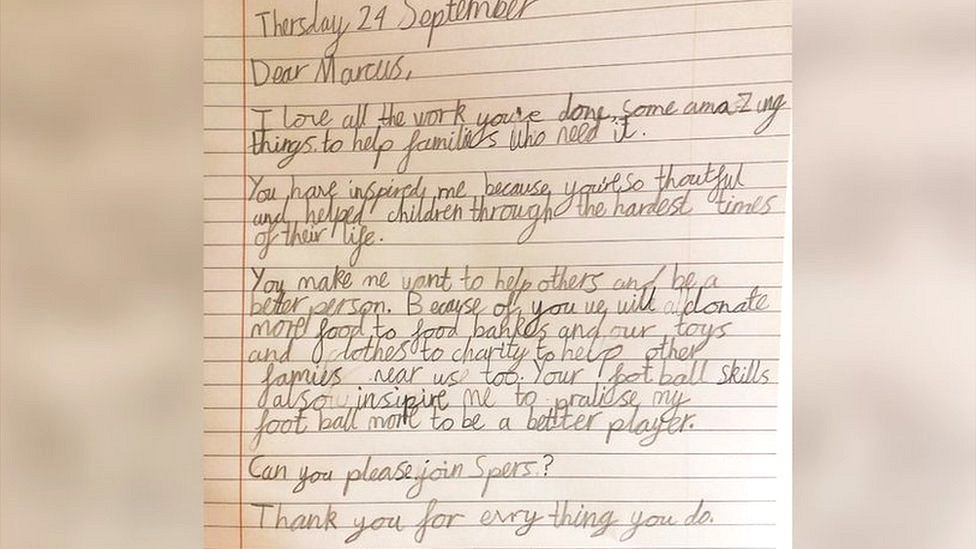 Thersday 24 September
Dear Marcus,
I love all the work you've done, some amazing
things to help families who need it.
You have inspired me because you're so thoutful
and helped children through the hardest times
of their life.
You make me want to help others and be a
better person. Because of you we will donate
more food to food bankes and our toys
and clothes to charity to help other
famies near use too. Your foot ball skills
also insipire me to pralise my
foot ball more to be a better player.
Can you please join Spers?
Thank you for erry thing you do.